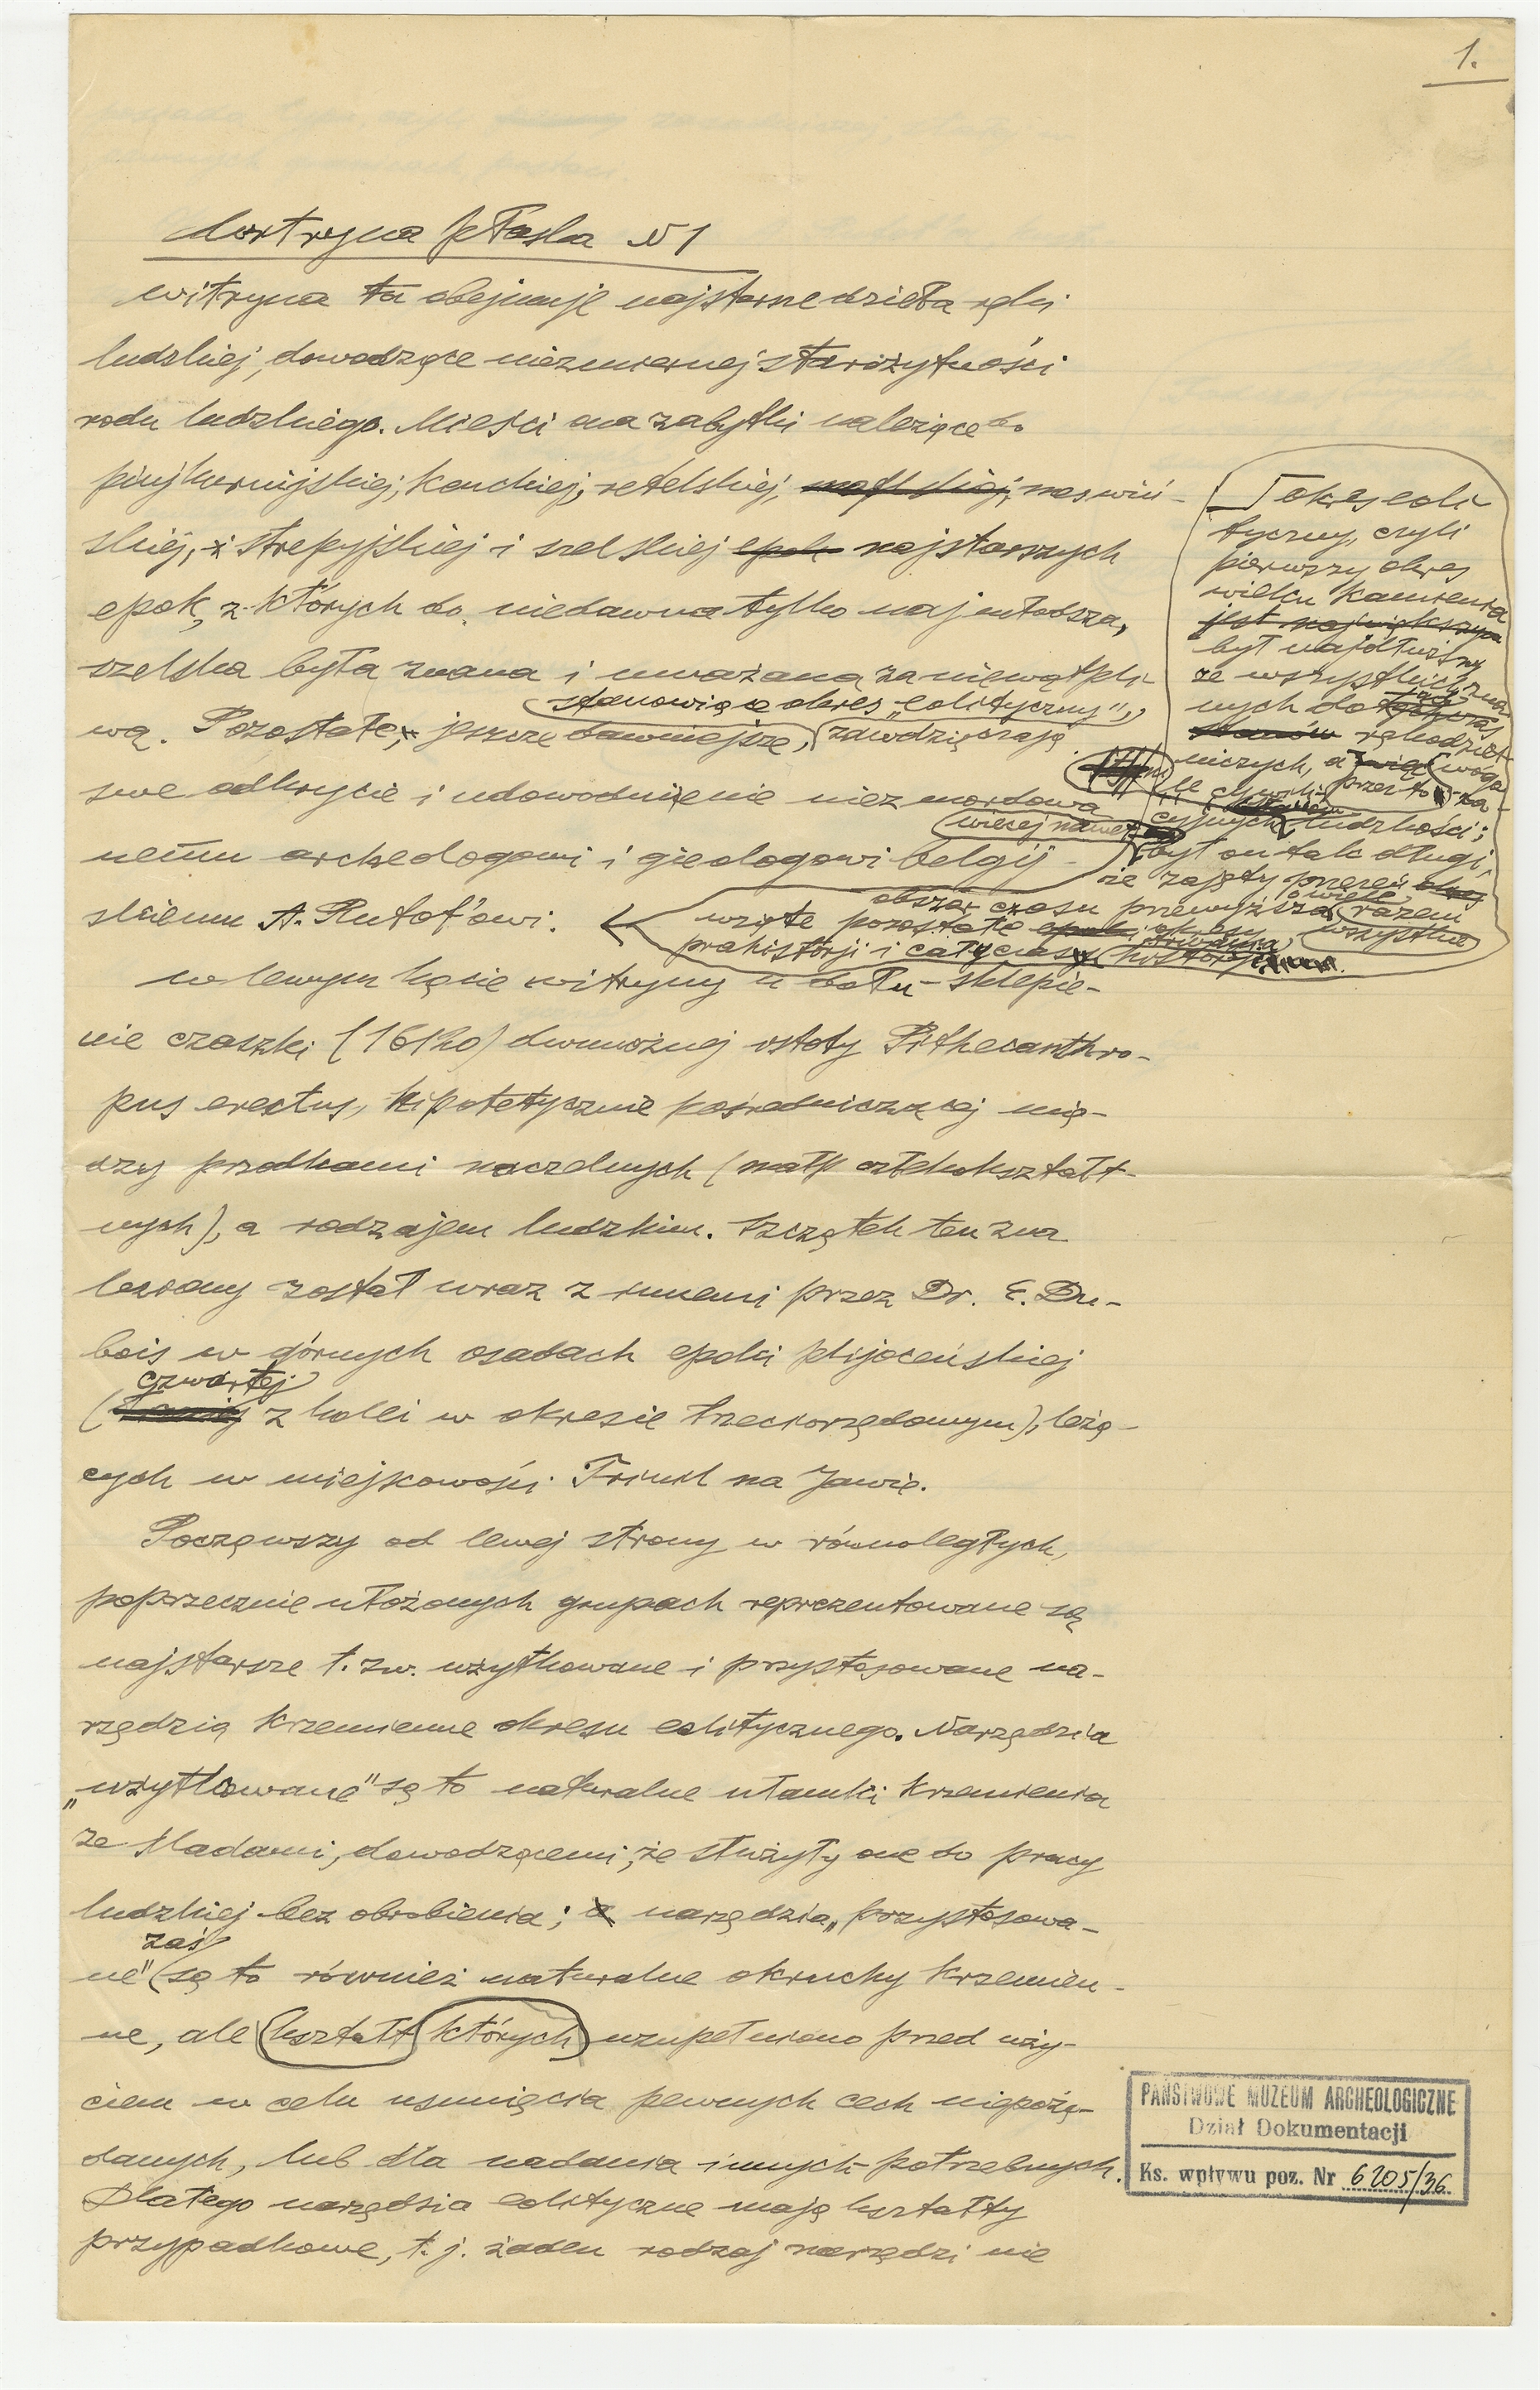 1.
Witryna płaska N 1
Witryna ta obejmuje najstarsze dzieła ręki
ludzkiej, dowodzące niezmiernej starożytności
rodu ludzkiego. Mieści ona zabytki należące do
kentskiej, retelskiej, meswiń-
skiej, i strepyjskiej i szelskiej epoki najstarszych
epok, z których do niedawna tylko najmłodsza,
szelska była znana i uważana za niewątpli-
stanowiące okres „eolityczny",
wą. Pozostałe, jeszcze dawniejsze, zawdzięczają
swe odkrycie i udowodnienie niezmordowa
nemu archeologowi i gieologowi belgij-
skiemu A. Rutot'owi.
okres eoli-
tyczny, czyli
pierwszy okres
wieku kamienia
jest największym
był najdłuższy
ze wszystkich zna
nych do
niczych, a wogó
le przesto
cyjnych ludzkości;
więcej nawet
był on tak długi,
że zajęty przezeń okres
obszar czasu przewyższa o wiele razem
wzięte pozostałe epoki okresy wszystkie
prahistorji i całą historji
W lewym kącie witryny u dołu – sklepie-
nie czaszki (16120) dwunożnej istoty Pithecanthro-
pus erectus, hipotetycznie pośredniczącej mię-
dzy przodkami naczelnych (małp człekokształt-
nych), a rodzajem ludzkim. Szczątek ten zna
leziony został wraz z innemi przez Dr. E. Du-
bois w górnych osadach epoki plijoceńskiej
czwartej
( z kolei w okresie trzeciorzędowym), leżą-
cych w miejscowości Trinil na Jawie.
Począwszy od lewej strony w równoległych,
poprzecznie ułożonych grupach reprezentowane są
najstarsze t. zw. użytkowane i przystosowane na-
rzędzia krzemienne okresu eolitycznego. Narzędzia
„użytkowane" są to naturalne ułamki krzemienia
ze śladami, dowodzącemi, że służyły one do pracy
ludzkiej bez obrobienia; a narzędzia „przystosowa-
zaś
ne" są to również naturalne okruchy krzemien-
ne, ale kształt których uzupełniono przed uży-
ciem w celu usunięcia pewnych cech niepożą-
danych, lub dla nadania innych potrzebnych.
Dlatego narzędzia eolityczne mają kształty
przypadkowe, t. j. żaden rodzaj narzędzi nie
PAŃSTWOWE MUZEUM ARCHEOLOGICZNE
Dział Dokumentacji
Ks. wpływu poz. Nr 6205/36